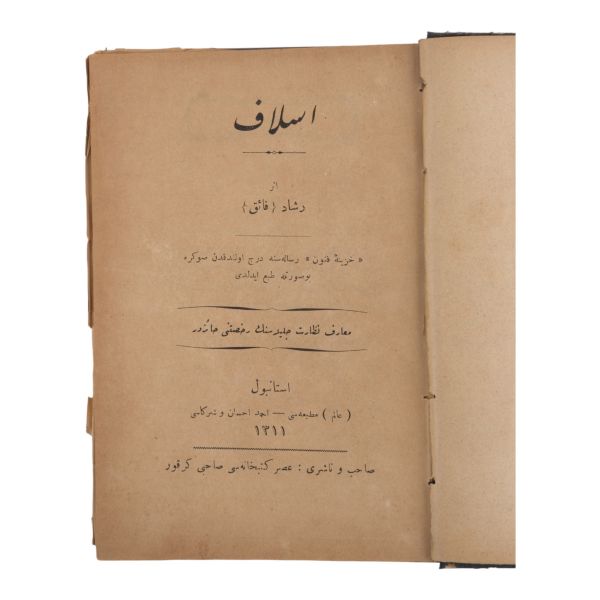 اسلاف
اثر
رشاد {فائق}
« خزینهٔ فنون » رساله‌سنه درج اولندقدن سوکره
بوصورتله طبع ایدلدی
معارف نظارت جلیله‌سنك رخصتنی حائزدر
استانبول
( عالم ) مطبعه‌سی — احمد احسان و شرکاسی
١٣١١
صاحب و ناشری : عصر کتبخانه‌سی صاحبی کرقور